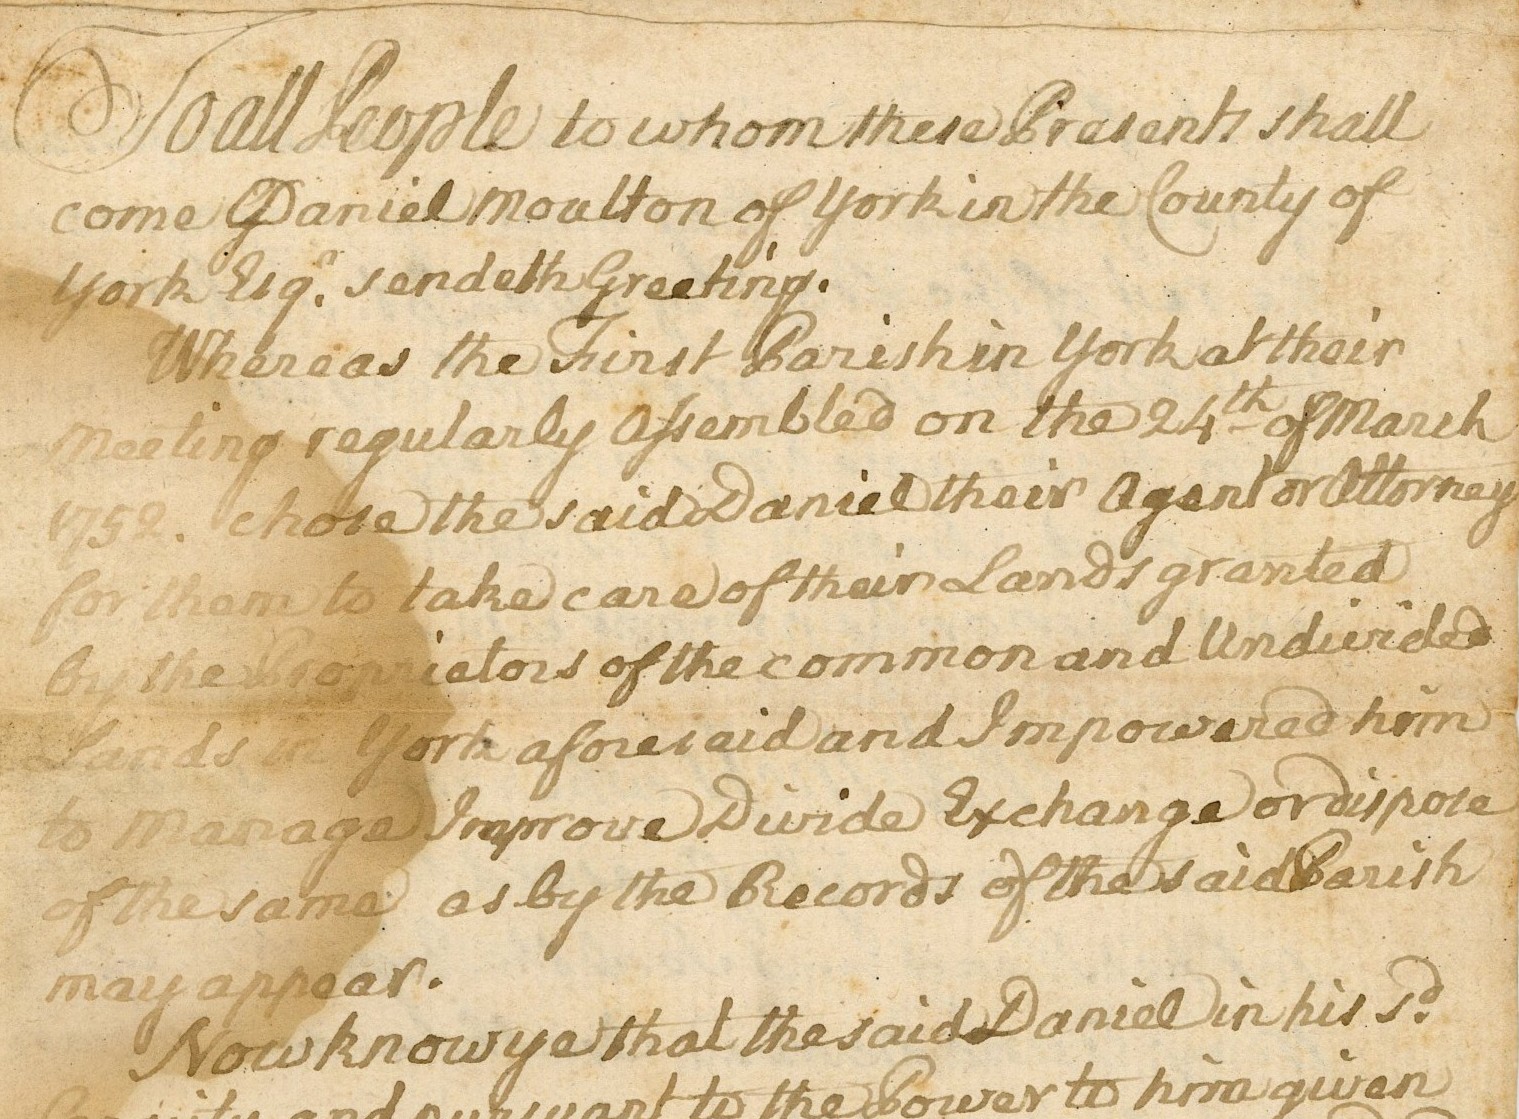 To all People to whom these Presents shall
come Daniel Moulton of York in the County of
York Esqr. sendeth Greeting.
Whereas the First Parish in York at their
Meeting regularly Assembled on the 24th of March
1752. chose the said Daniel their Agent or Attorney
for them to take care of their Lands granted
by the Proprietors of the common and Undivided
Lands in York aforesaid and Impowered him
to Manage Improve Divide Exchange or dispose
of the same as by the Records of the said Parish
may appear.
Now know ye that the said Daniel in his sd.
Capacity and pursuant to the Power to him given